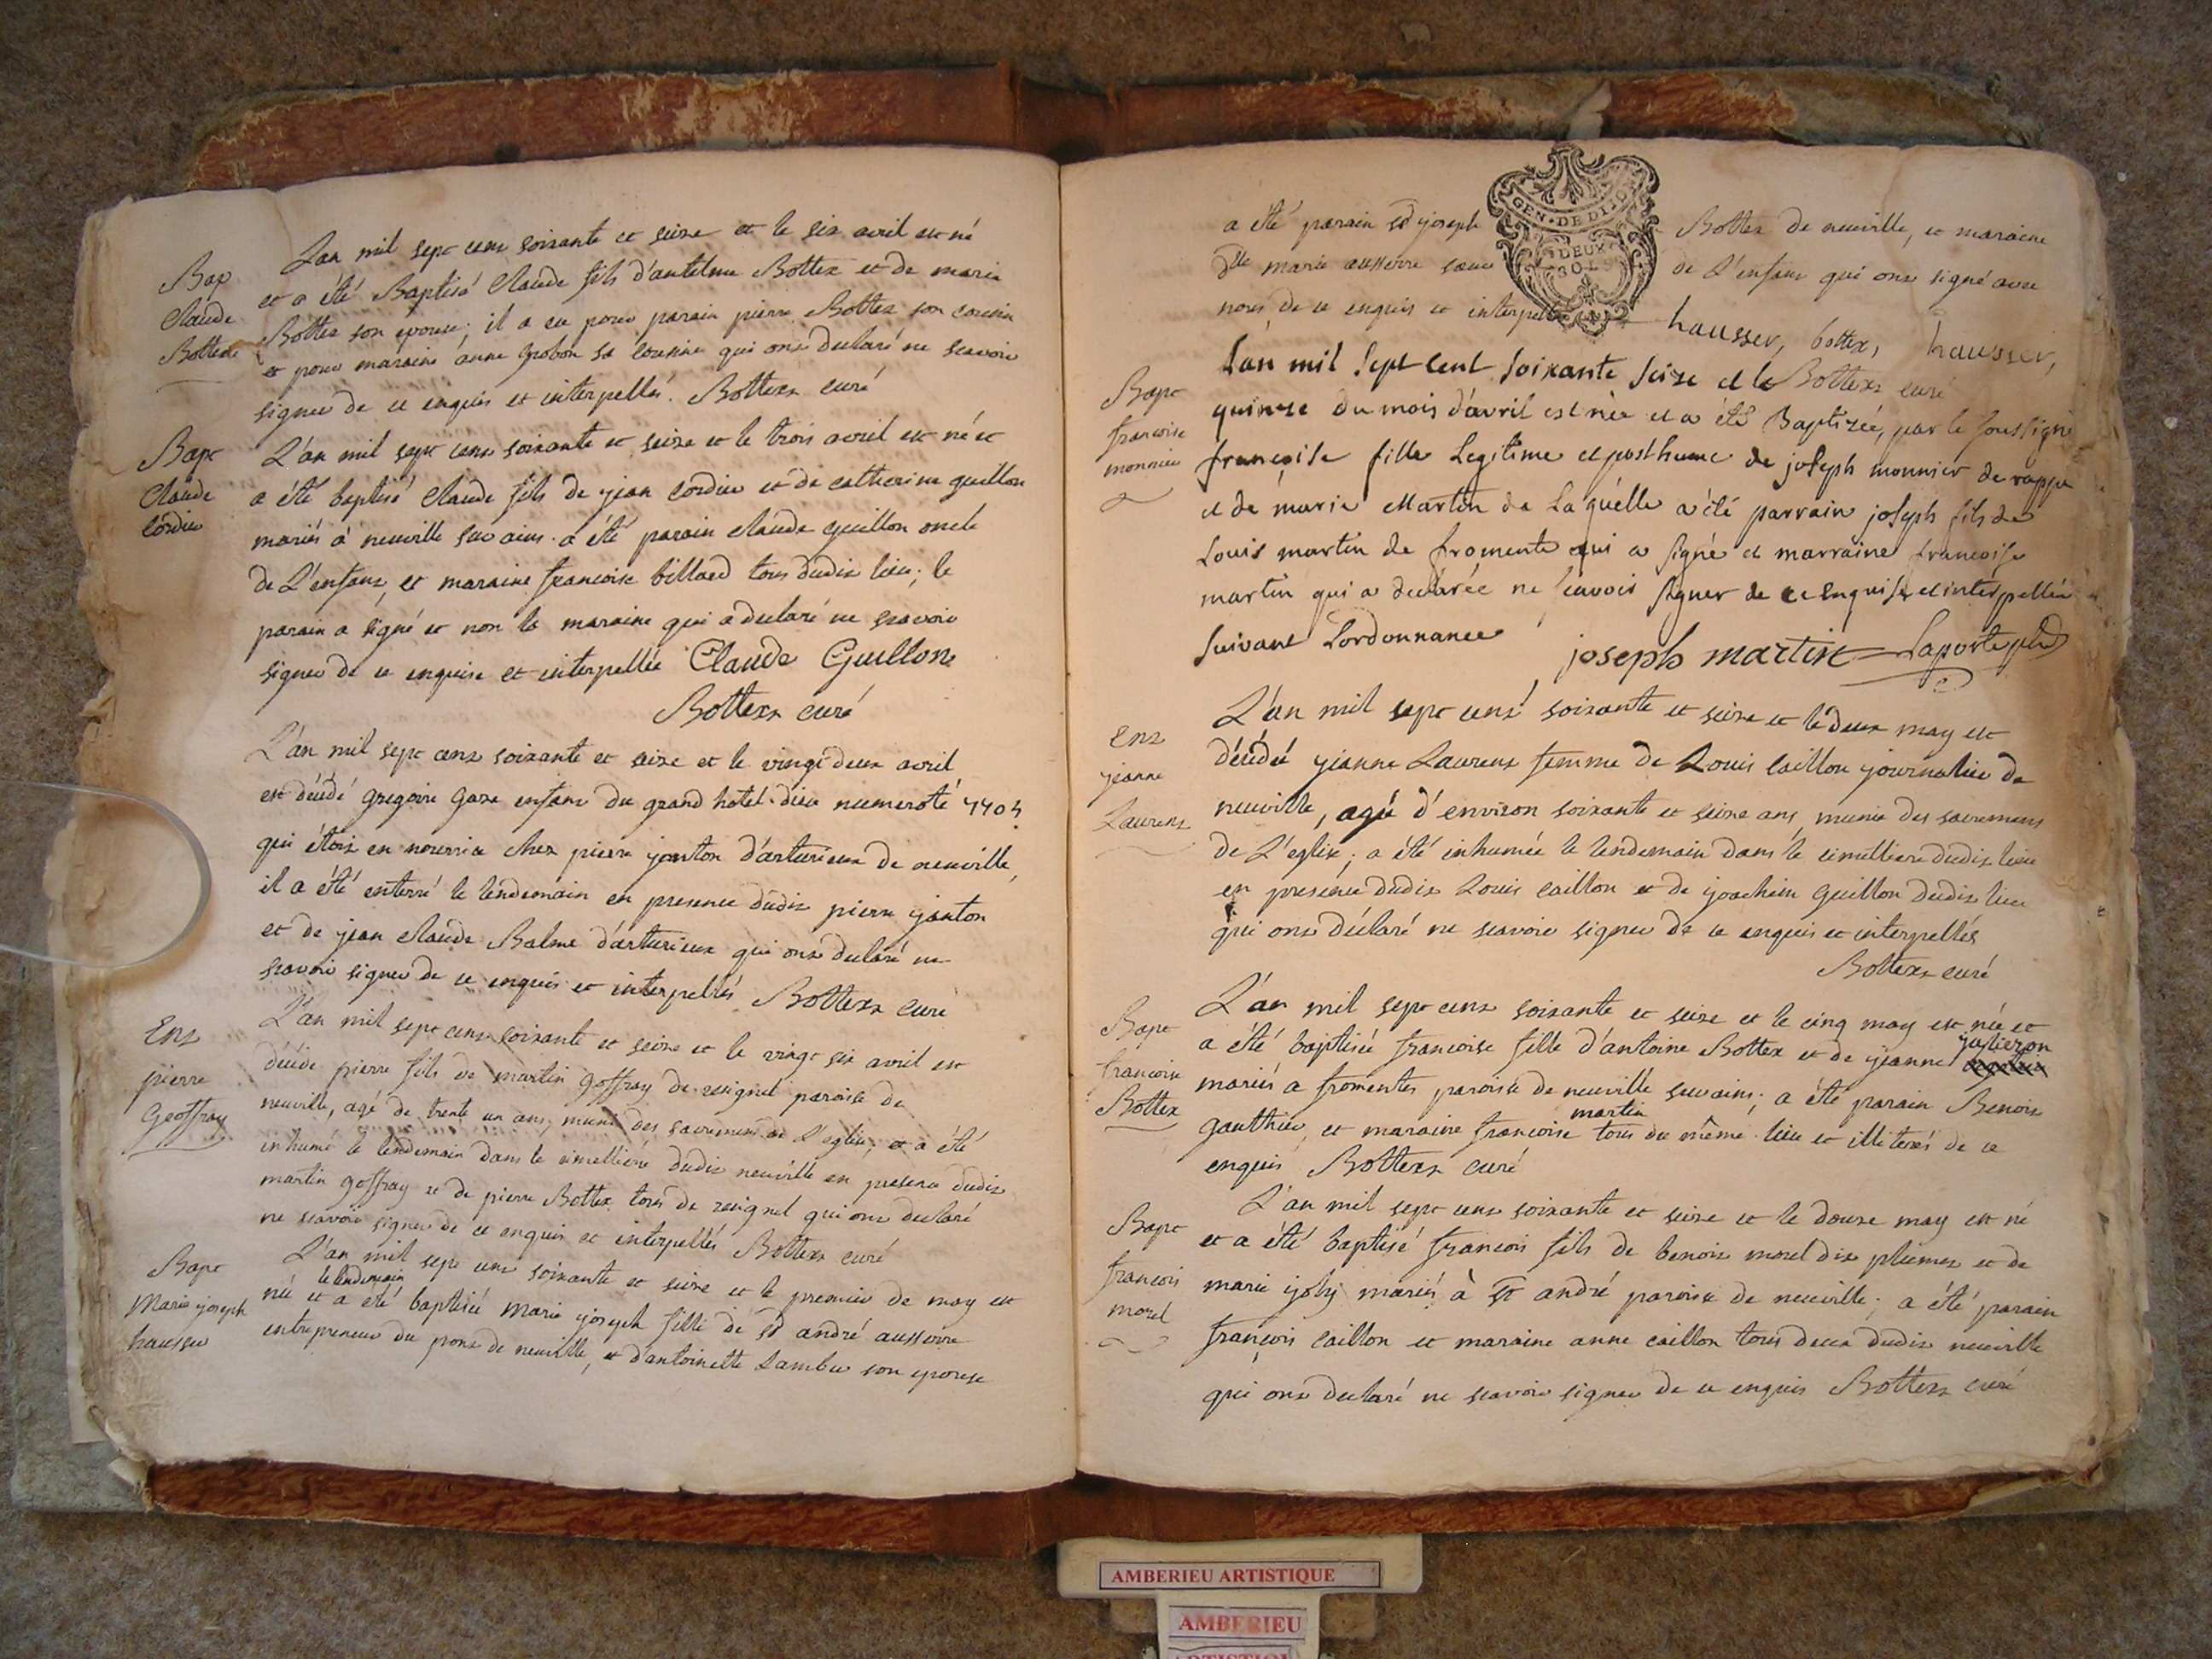 Bap
Claude
Bottex
L'an mil sept cens soixante et seize et le six avril est né
et a été Baptisé Claude fils d'antelme Bottex et de marie
Bottex son epouse; il a eu pour parain pierre Bottex son cousin
et pour maraine anne grobon sa cousine qui ont declaré ne scavoir
signer de ce enquis et interpellés. Bottexs curé
Bapt
Claude
Cordier
L'an mil sept cens soixante et seize et le trois avril est né et
a été baptisé Claude fils de jean Cordier et de catherine guillon
mariés a neuville sur ains. a été parain claude guillon oncle
de L'enfant, et maraine francoise billard tous dudit lieu; le
parain a signé et non la maraine qui a declaré ne scavoir
signer de ce enquise et interpellée Claude Guillon
Bottexs curé
L'an mil sept cens soixante et seize et le vingt deux avril
est décédé gregoire gaze enfant du grand hotel-dieu numeroté 4404
qui étoit en nourrice chez pierre janton d'arturieux de neuville,
il a été enterré le lendemain en presence dudit pierre janton
et de jean claude Balme d'arturieux qui ont declaré ne
scavoir signer de ce enquis et interpellés Bottexs curé
Ent
pierre
Geoffray
L'an mil sept cens soixante et seize et le vingt six avril est
décéde pierre fils de martin goffray de resignel paroisse de
neuville, agé de trente un ans, muni des sacremens de L'eglise; et a été
inhumé le lendemain dans le cimettiere dudit neuville en presence dudit
martin goffray et de pierre Bottex tous de resignel qui ont declaré
ne scavoir signer de ce enquis et interpellés Bottexs curé
Bapt
Marie joseph
hausser
L'an mil sept cens soixante et seize et le premier de may est
le lendemain
née et a été baptisée Marie joseph fille de sr andré ausserre
entrepreneur du pont de neuville, et d'antoinette Lamber son epouse
GEN. DE DIJON
DEUX
SOLS
a été parain sr joseph Bottex de neuville, et maraine
dlle marie ausserre soeur de L'enfant qui ont signé avec
nous de ce enquis et interpellés hausser, bottex, hausser,
Bottexs curé
Bapt
francoise
monnier
L'an mil sept cent soixante seize et le
quinze du mois d'avril est née et a été Baptizée, par le soussigné
françoise fille Legitime et posthume de joseph monnier de rappe
et de marie Martin de Laquelle a été parrain joseph fils de
Louis martin de fromente qui a signé et marraine francoise
martin qui a declarée ne scavoir signer de ce enquise et interpellée
suivant Lordonnance joseph martin Laporte
Ent
jeanne
Laurent
L'an mil sept cens soixante et seize et le deux may est
décédée jeanne Laurent femme de Louis Caillon journalier de
neuville, agée d'environ soixante et seize ans, munie des sacremens
de L'eglise; a été inhumée le lendemain dans le cimettiere dudit lieu
en presence dudit Louis caillon et de joachim Guillon dudit lieu
qui ont déclaré ne scavoir signer de ce enquis et interpellés
Bottexs curé
Bapt
francoise
Bottex
L'an mil sept cens soixante et seize et le cinq may est née et
a été baptisée francoise fille d'antoine Bottex et de jeanne juslieron
mariés a fromentes paroisse de neuville sur ains; a été parain Benoit
gauthier, et maraine francoise martin tous du même lieu et illiterés de ce
enquis Bottexs curé
Bapt
francois
morel
L'an mil sept cens soixante et seize et le douze may est né
et a été baptisé francois fils de benoit morel dit plumet et de
marie joly mariés à st andré paroisse de neuville; a été parain
françois caillon et maraine anne caillon tous deux dudit neuville
qui ont declaré ne scavoir signer de ce enquis Bottexs curé
AMBERIEU ARTISTIQUE
AMBERIEU
ARTISTIQUE